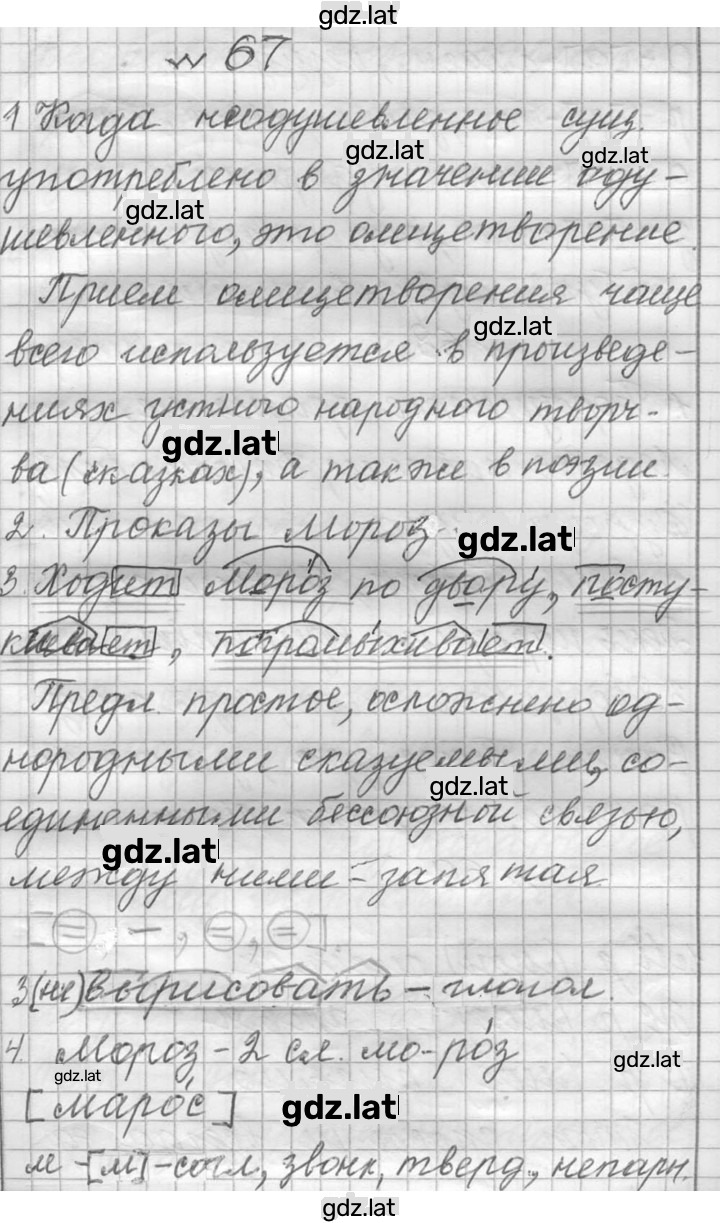 gdz.lat
№ 67
1 Когда неодушевленное сущ.
gdz.lat gdz.lat
употреблено в значении оду-
gdz.lat
шевлённого, это олицетворение.
Прием олицетворения чаще
gdz.lat
всего используется в произведе-
ниях устного народного творч-
gdz.lat
ва (сказках), а также в поэзии.
2. Проказы мороз
gdz.lat
3. Ходит Моро́з по двору́, посту-
кивает, погромы́хивает.
Предл. простое, осложнено од-
нородными сказуемыми, со-
gdz.lat
единенными бессоюзной связью,
gdz.lat
между ними – запятая.
[= – , =, =].
3 (не) вырисовать – глагол.
4. Мороз – 2 сл. мо-ро́з
gdz.lat gdz.lat
[маро́с]
gdz.lat
м -[м]-согл, звонк, тверд., непарн.
gdz.lat